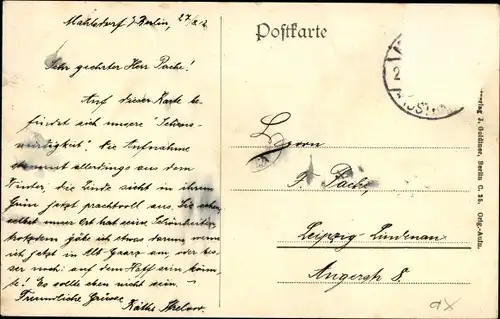 Mahlsdorf b/Berlin, 27/8.12
Sehr geehrter Herr Pache!
Auf dieser Karte be-
findet sich unsere Sehens-
würdigkeit! Die Aufnahme
stammt allerdings aus dem
Winter, die Linde sieht in ihrem
Grün jetzt prachtvoll aus. Sie sehen,
selbst unser Ort hat seine Schönheiten,
trotzdem gäbe ich etwas darum, wenn
ich jetzt in Alt-Gaarz am, oder bes-
ser noch: auf dem Haff sein könn-
te! Es sollte eben nicht sein.
Freundliche Grüsse
Käthe
Postkarte
Herrn
F. Pache,
Leipzig-Lindenau
Angerstr 8.
Verlag J. Goldiner, Berlin C. 25. Orig.-Aufn.